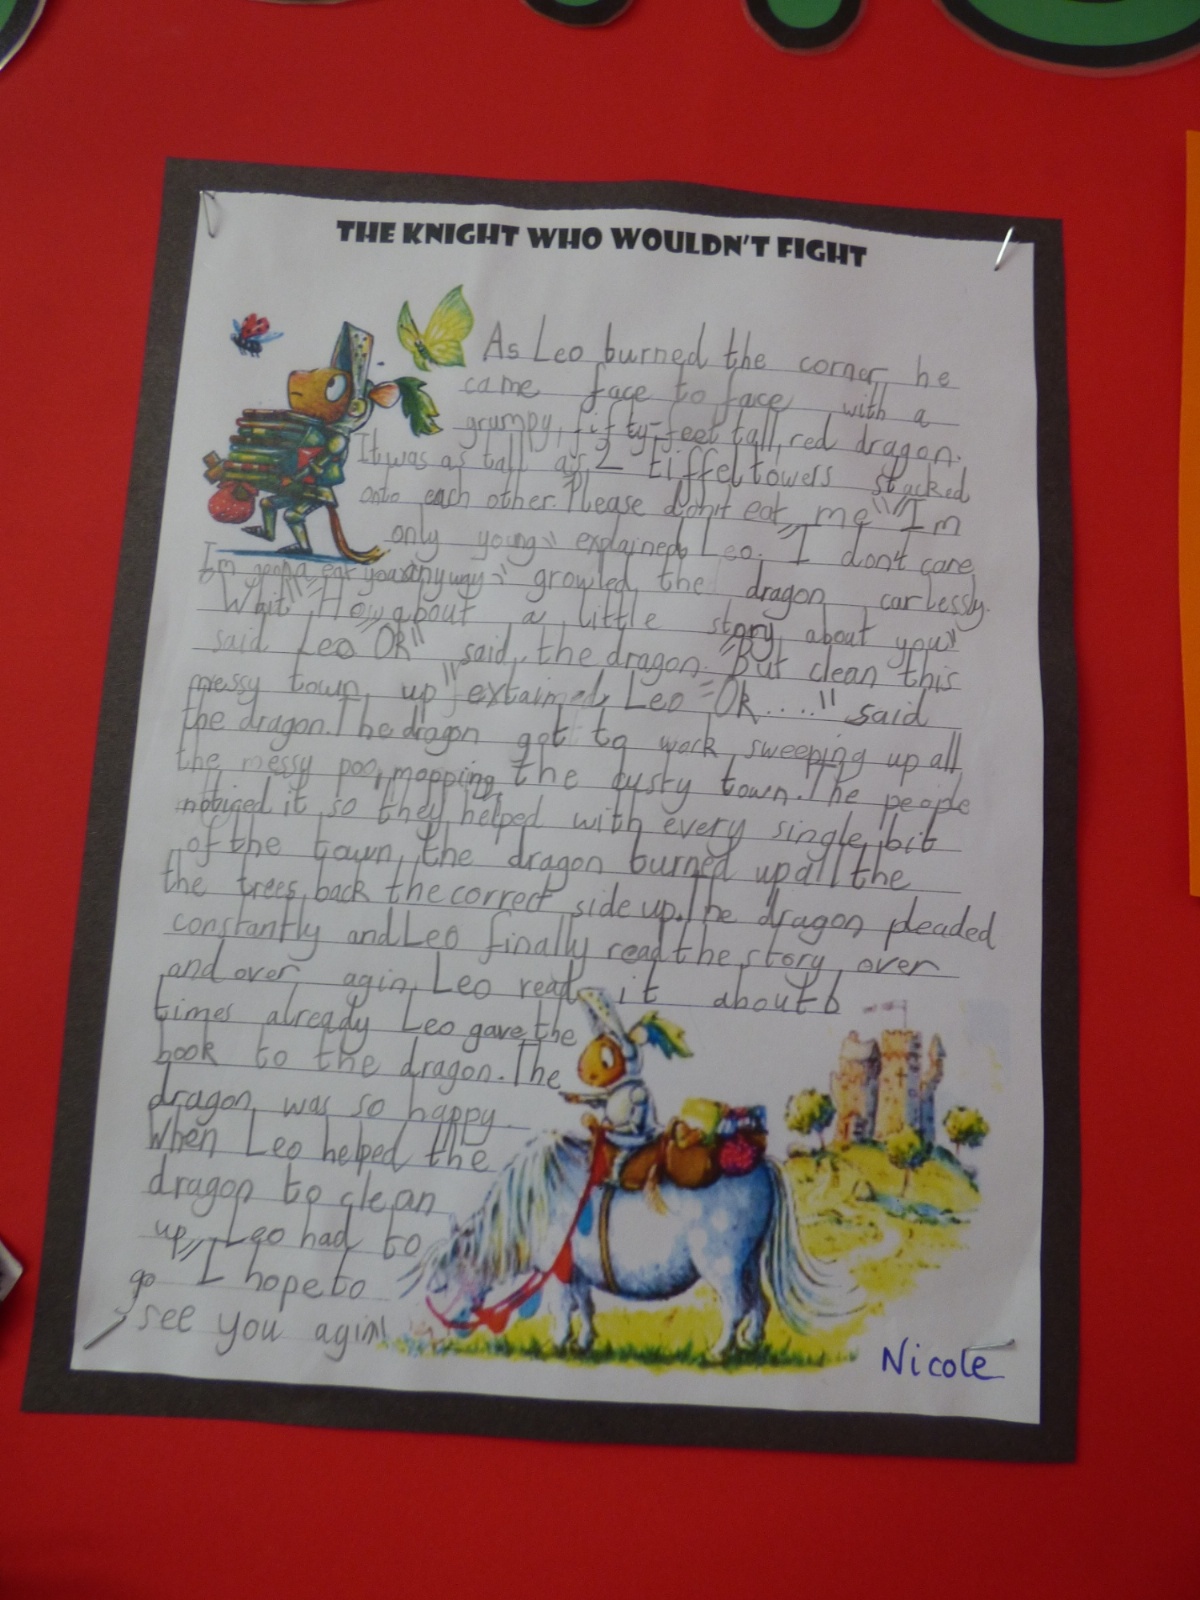 THE KNIGHT WHO WOULDN'T FIGHT
As Leo burned the corner, he
came face to face with a
grumpy, fifty-feet tall, red dragon.
It was as tall as 2 Eiffel towers stacked
onto each other. "Please don't eat me" "I'm
only young" explained Leo. "I don't care
I'm gonna eat you anyway" growled the dragon carlessly.
"Wait" "How about a little story about you"
said Leo "Ok" said, the dragon. "But clean this
messy town up" extaimed Leo "Ok...." said
the dragon. The dragon got to work sweeping up all
the messy poo, mopping the dusty town. The people
noticed it so they helped with every single bit
of the town, the dragon burned up all the
the trees back the correct side up. The dragon pleaded
constantly and Leo finally read the story over
and over agin, Leo read it about 6
times already Leo gave the
book to the dragon. The
dragon was so happy.
When Leo helped the
dragon to clean
up, Leo had to
go "I hope to
see you agin!
Nicole